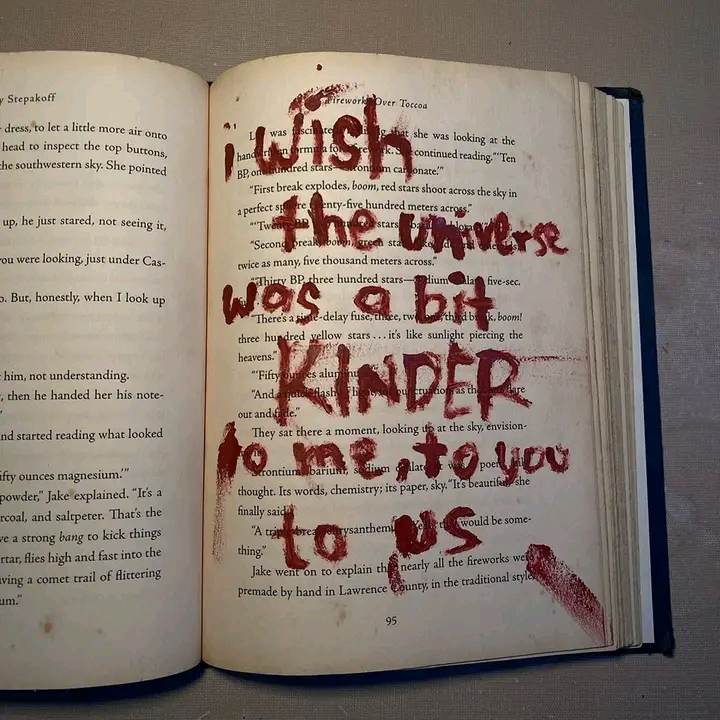 y Stepakoff
dress, to let a little more air onto
head to inspect the top buttons,
the southwestern sky. She pointed
up, he just stared, not seeing it,
you were looking, just under Cas-
o. But, honestly, when I look up
him, not understanding.
, then he handed her his note-
nd started reading what looked
ifty ounces magnesium.'"
powder," Jake explained. "It's a
rcoal, and saltpeter. That's the
ve a strong bang to kick things
rtar, flies high and fast into the
aving a comet trail of flittering
um."
Fireworks Over Toccoa
was that she was looking at the
formula for continued reading. "'Ten
BP, one hundred stars—strontium carbonate.'"
"First break explodes, boom, red stars shoot across the sky in
a perfect sphere twenty-five hundred meters across."
"'Twenty BP, hundred stars,
"Second break, boom, green stars
twice as many, five thousand meters across."
"'Thirty BP, three hundred stars— five-sec.
"There's a time-delay fuse, three, two, one, third break, boom!
three hundred yellow stars . . . it's like sunlight piercing the
heavens."
"'Fifty ounces aluminum
"And a quick flash of light, a punctuation as the flare
out and fade."
They sat there a moment, looking up at the sky, envision-
Strontium, barium, sodium
thought. Its words, chemistry; its paper, sky. "It's beautiful," she
finally said.
"A chrysanthemum. Yeah, that would be some-
thing."
Jake went on to explain that nearly all the fireworks were
premade by hand in Lawrence County, in the traditional style
95
i wish
the universe
was a bit
KINDER
to me, to you
to us